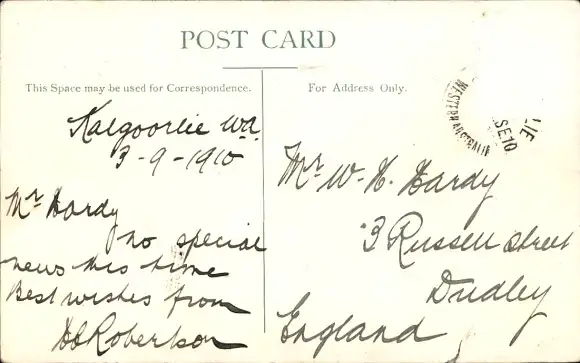 POST CARD
This Space may be used for Correspondence.
For Address Only.
Kalgoorlie Wa.
3-9-1910
Mr Hardy
no special
news this time
Best wishes from
Robertson
Mr W. H. Hardy
3 Russell Street
Dudley
England
WESTERN AUSTRALIA
SE10
LIE